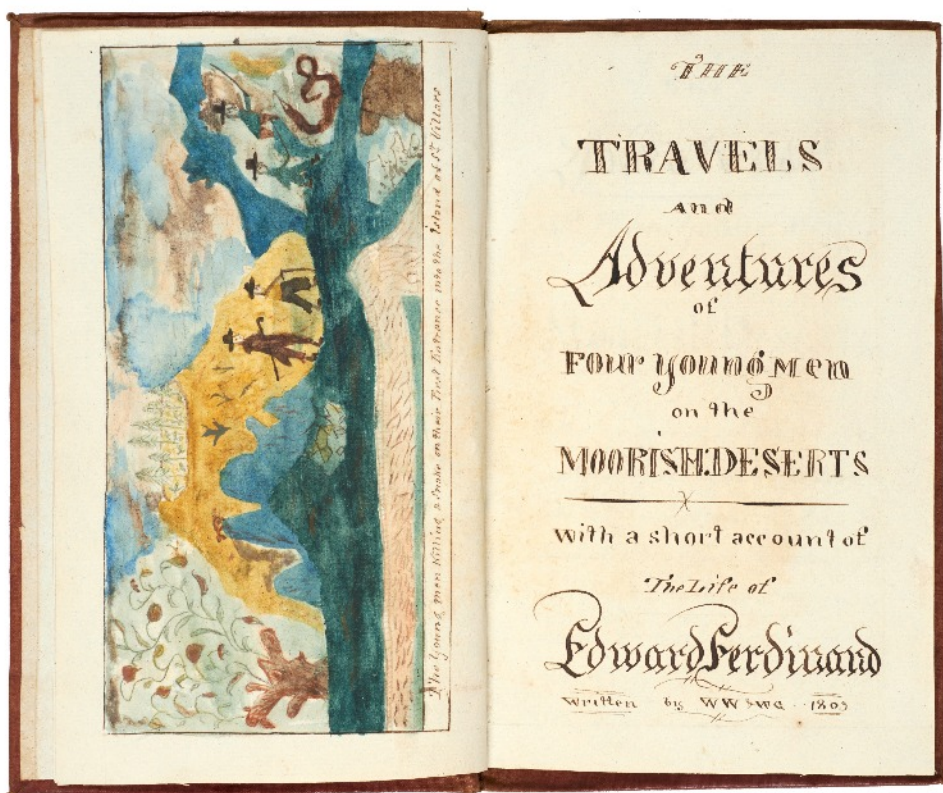 The Young men Killing a Snake on their First Entrance into the Island of St Villars
THE
TRAVELS
And
Adventures
of
Four Young Men
on the
MOORISH.DESERTS
With a short account of
The Life of
Edward Ferdinand
Written by WW 1809